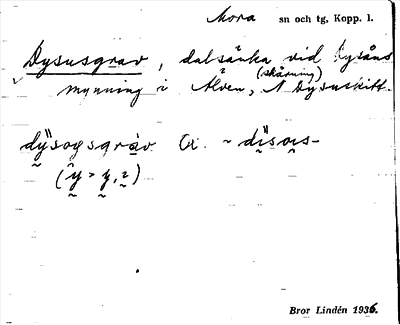 Mora sn och tg, Kopp. l.
Dysusgrav, dalsänka vid Dysåns
(skärning)
mynning i Älven, N Dysuskitt.
dy̰̎sogsgràv Or. ~ dḭ̎so̰i̯s-
(y̰̑ > y̰, ḭ)
Bror Lindén 1936.